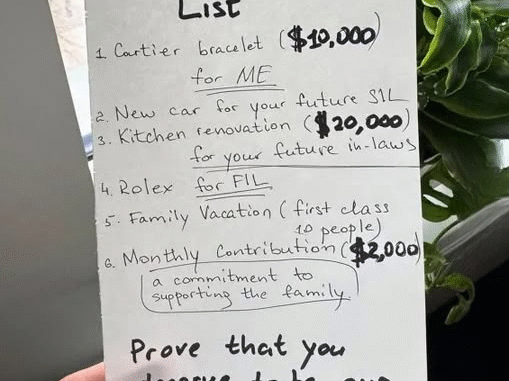 List
1 Cartier bracelet ($10,000)
for ME
2. New car for your future SIL
3. Kitchen renovation ($20,000)
for your future in-laws
4. Rolex for FIL
5. Family Vacation (first class
10 people)
6. Monthly Contribution ($2,000)
a commitment to
supporting the family
Prove that you